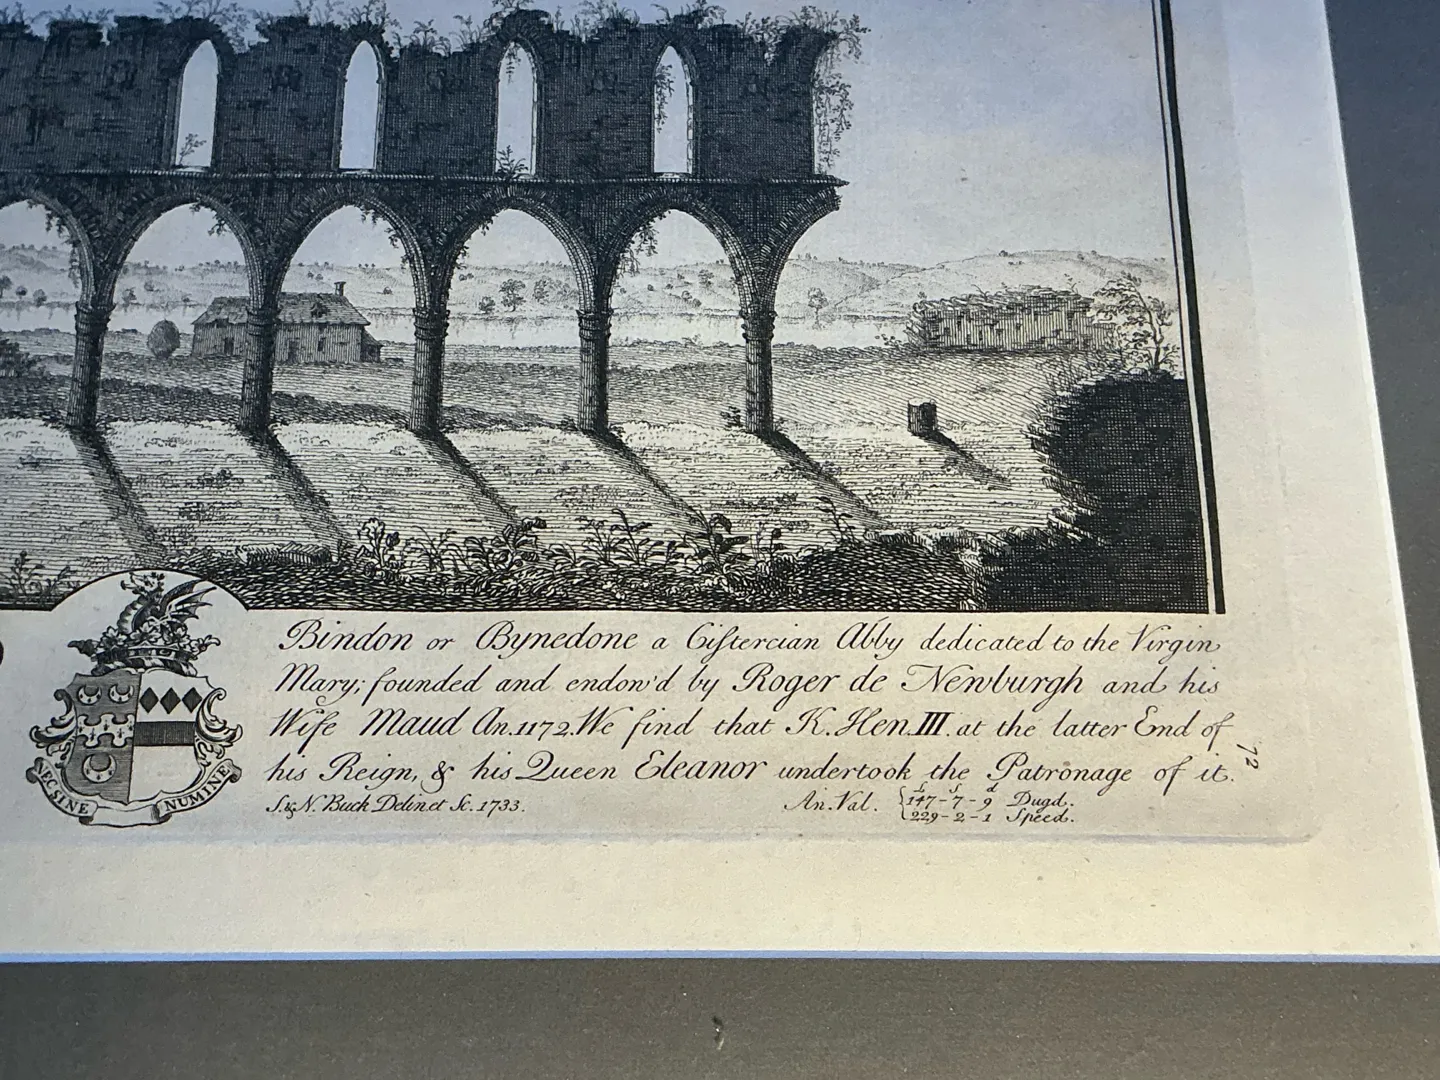 Bindon or Bynedone a Cistercian Abby dedicated to the Virgin
Mary; founded and endow'd by Roger de Newburgh and his
Wife Maud An. 1172. We find that K. Hen. III. at the latter End of
his Reign, & his Queen Eleanor undertook the Patronage of it.
S. & N. Buck Delin et Sc. 1733.
An. Val. { L S d
147-7-9 Dugd.
229-2-1 Speed.
NEC SINE NUMINE
72